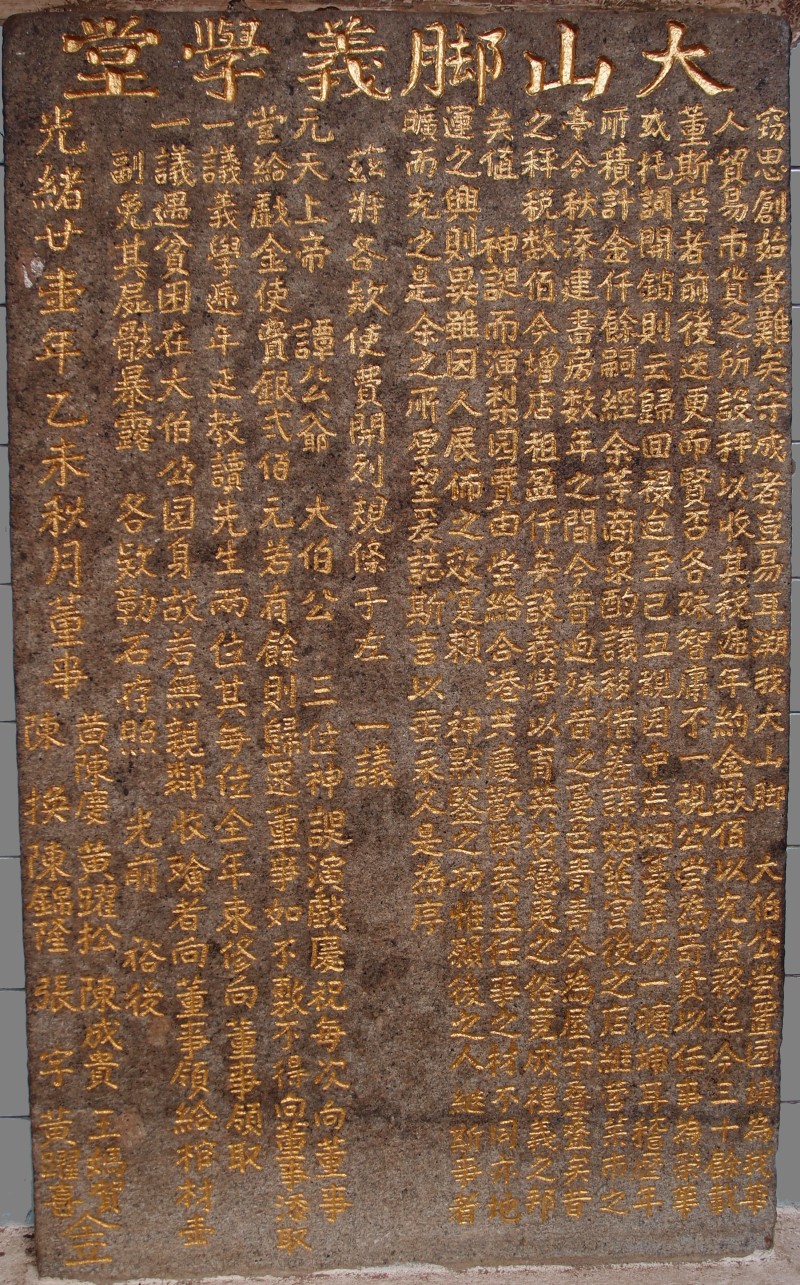 大山脚義學堂
窃思創始者難矣守成者豈易耳溯我大山脚 大伯公堂置園
人貿易市貨之所設秤以收其税遞年約金数佰以充堂務迄今三十餘載
董斯堂者前後迭更而賢否各殊智庸不一視公堂為奇貨以任事為榮華
或托詞開銷則云歸回祿迨至己丑視园中荒烟蔓草仍一礦埔耳稽歷年
所積計金仟餘嗣經余等商衆酌議務借箸謀始築宫後之店繼営美市之
亭今秋添建書房数年之間今昔逈殊昔之憂色青青今為屋宇疊疊矣昔
之秤税数佰今增店租盈仟矣設義學以育英材蠻夷之俗竟成禮義之邦
矣值 神誕而演梨园費由堂給合港共慶歡樂矣豈任事之材不同亦地
運之興則異雖因人展佈之效寔賴 神默鑒之功惟願後之人繼斯事者
曠而充之是余之所厚望爰誌斯言以垂永久是為序
茲將各欵使費開列規條于左 一議
元天上帝 譚公爺 大伯公 三位神誕演戲慶祝每次向董事
堂給戲金使費銀弍佰元若有餘則歸還董事如不敷不得向董事添取
一議義學遞年延教讀先生兩位其每位全年束修向董事領取
一議遇貧困在大伯公园身故若無親鄰收殮者向董事領給棺材壹
副免其屍骸暴露 各欵勒石存照 光前 裕後
光緒廿壹年乙未秋月董事
黄陳慶 黄躍松 陳成貴 王媽賀
陳換 陳錦隆 張字 黄躍喜 仝立